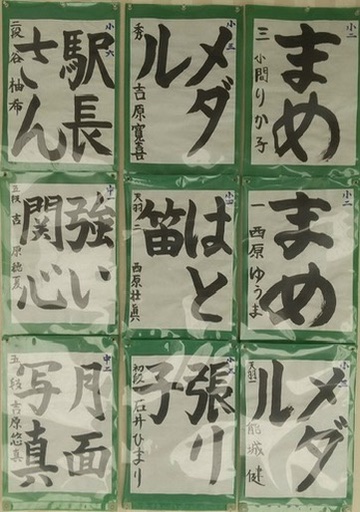 小二
まめ
三 小間りか子
小三
メダ
ル
秀 吉原寛喜
小六
駅長
さん
二段 谷 柚希
小二
まめ
一 西原ゆうま
小四
はと
笛
二 西原壮真
中一
強い
関心
五段 吉原穂夏
小三
メダ
ル
能城 健
張り
子
初二 石井ひまり
中二
月面
写真
五段 吉原悠真